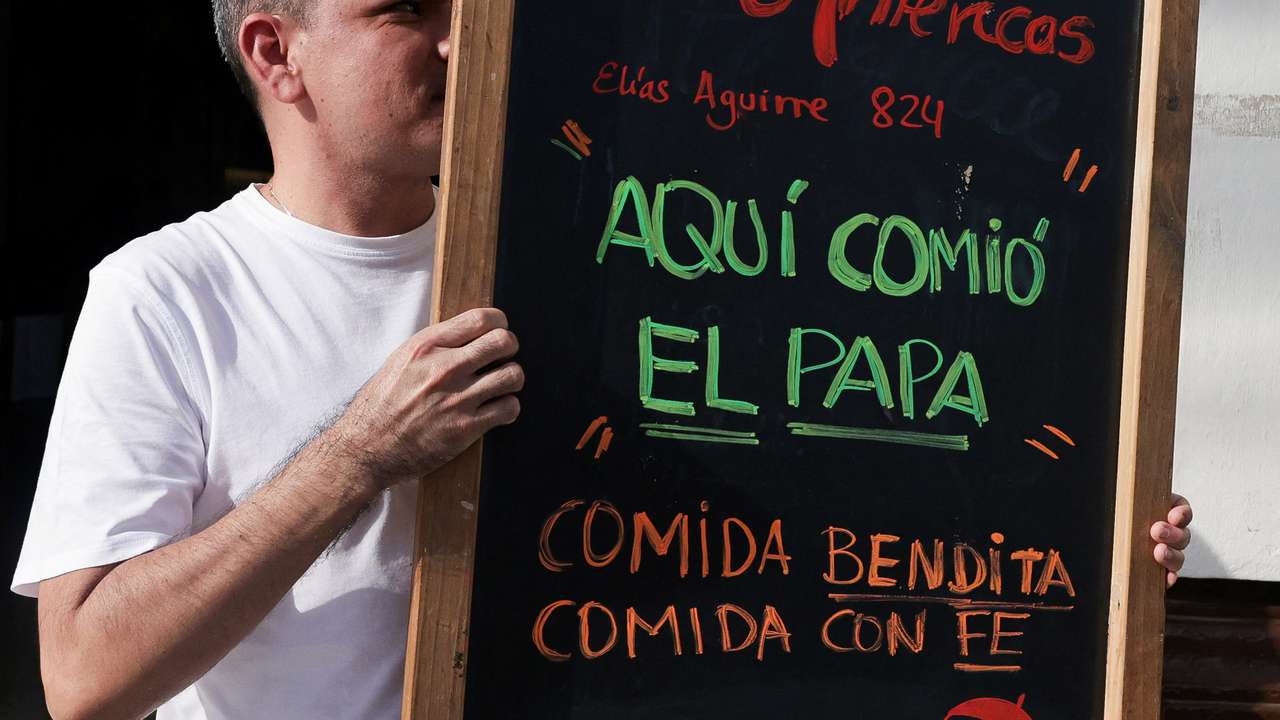 Américas
Elías Aguirre 824
"AQUÍ COMIÓ
EL PAPA"
COMIDA BENDITA
COMIDA CON FE